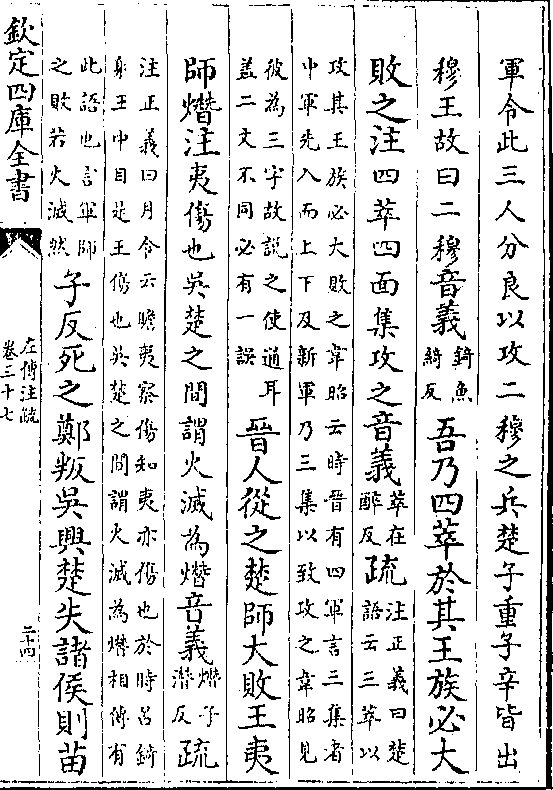 軍令此三人分良以攻二穆之兵楚子重子辛皆出
穆王故曰二穆音義錡魚
綺反吾乃四萃於其王族必大
敗之注四萃四面集攻之音義萃在
醉反疏注正義曰楚
語云三萃以
攻其王族必大敗之韋昭云時晉有四軍言三集者
中軍先入而上下及新軍乃三集以致攻之韋昭見
彼為三字故說之使通耳
蓋二文不同必有一誤晉人從之楚師大敗王夷
師熸注夷傷也吳楚之間謂火滅為熸音義熸子
潛反疏
注正義曰月令云瞻夷察傷知夷亦傷也於時呂錡
射王中目是王傷也吳楚之間謂火滅為熸相傳有
此語也言軍師
之敗若火滅然子反死之鄭叛吳興楚失諸侯則苗
欽定四庫全書
左傳注疏
卷三十七
二十四